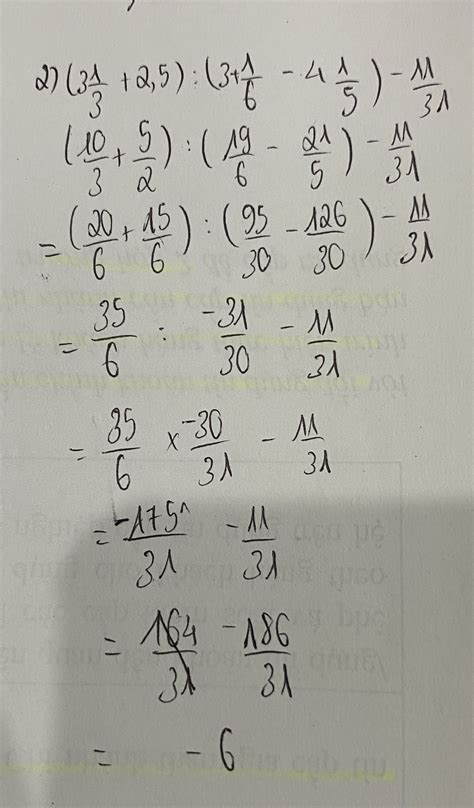 2) (3 1/3 + 2,5) : (3 + 1/6 - 4 1/5) - 11/31
(10/3 + 5/2) : (19/6 - 21/5) - 11/31
= (20/6 + 15/6) : (95/30 - 126/30) - 11/31
= 35/6 : -31/30 - 11/31
= 35/6 x -30/31 - 11/31
= -175/31 - 11/31
= 164/31 -186/31
= -6